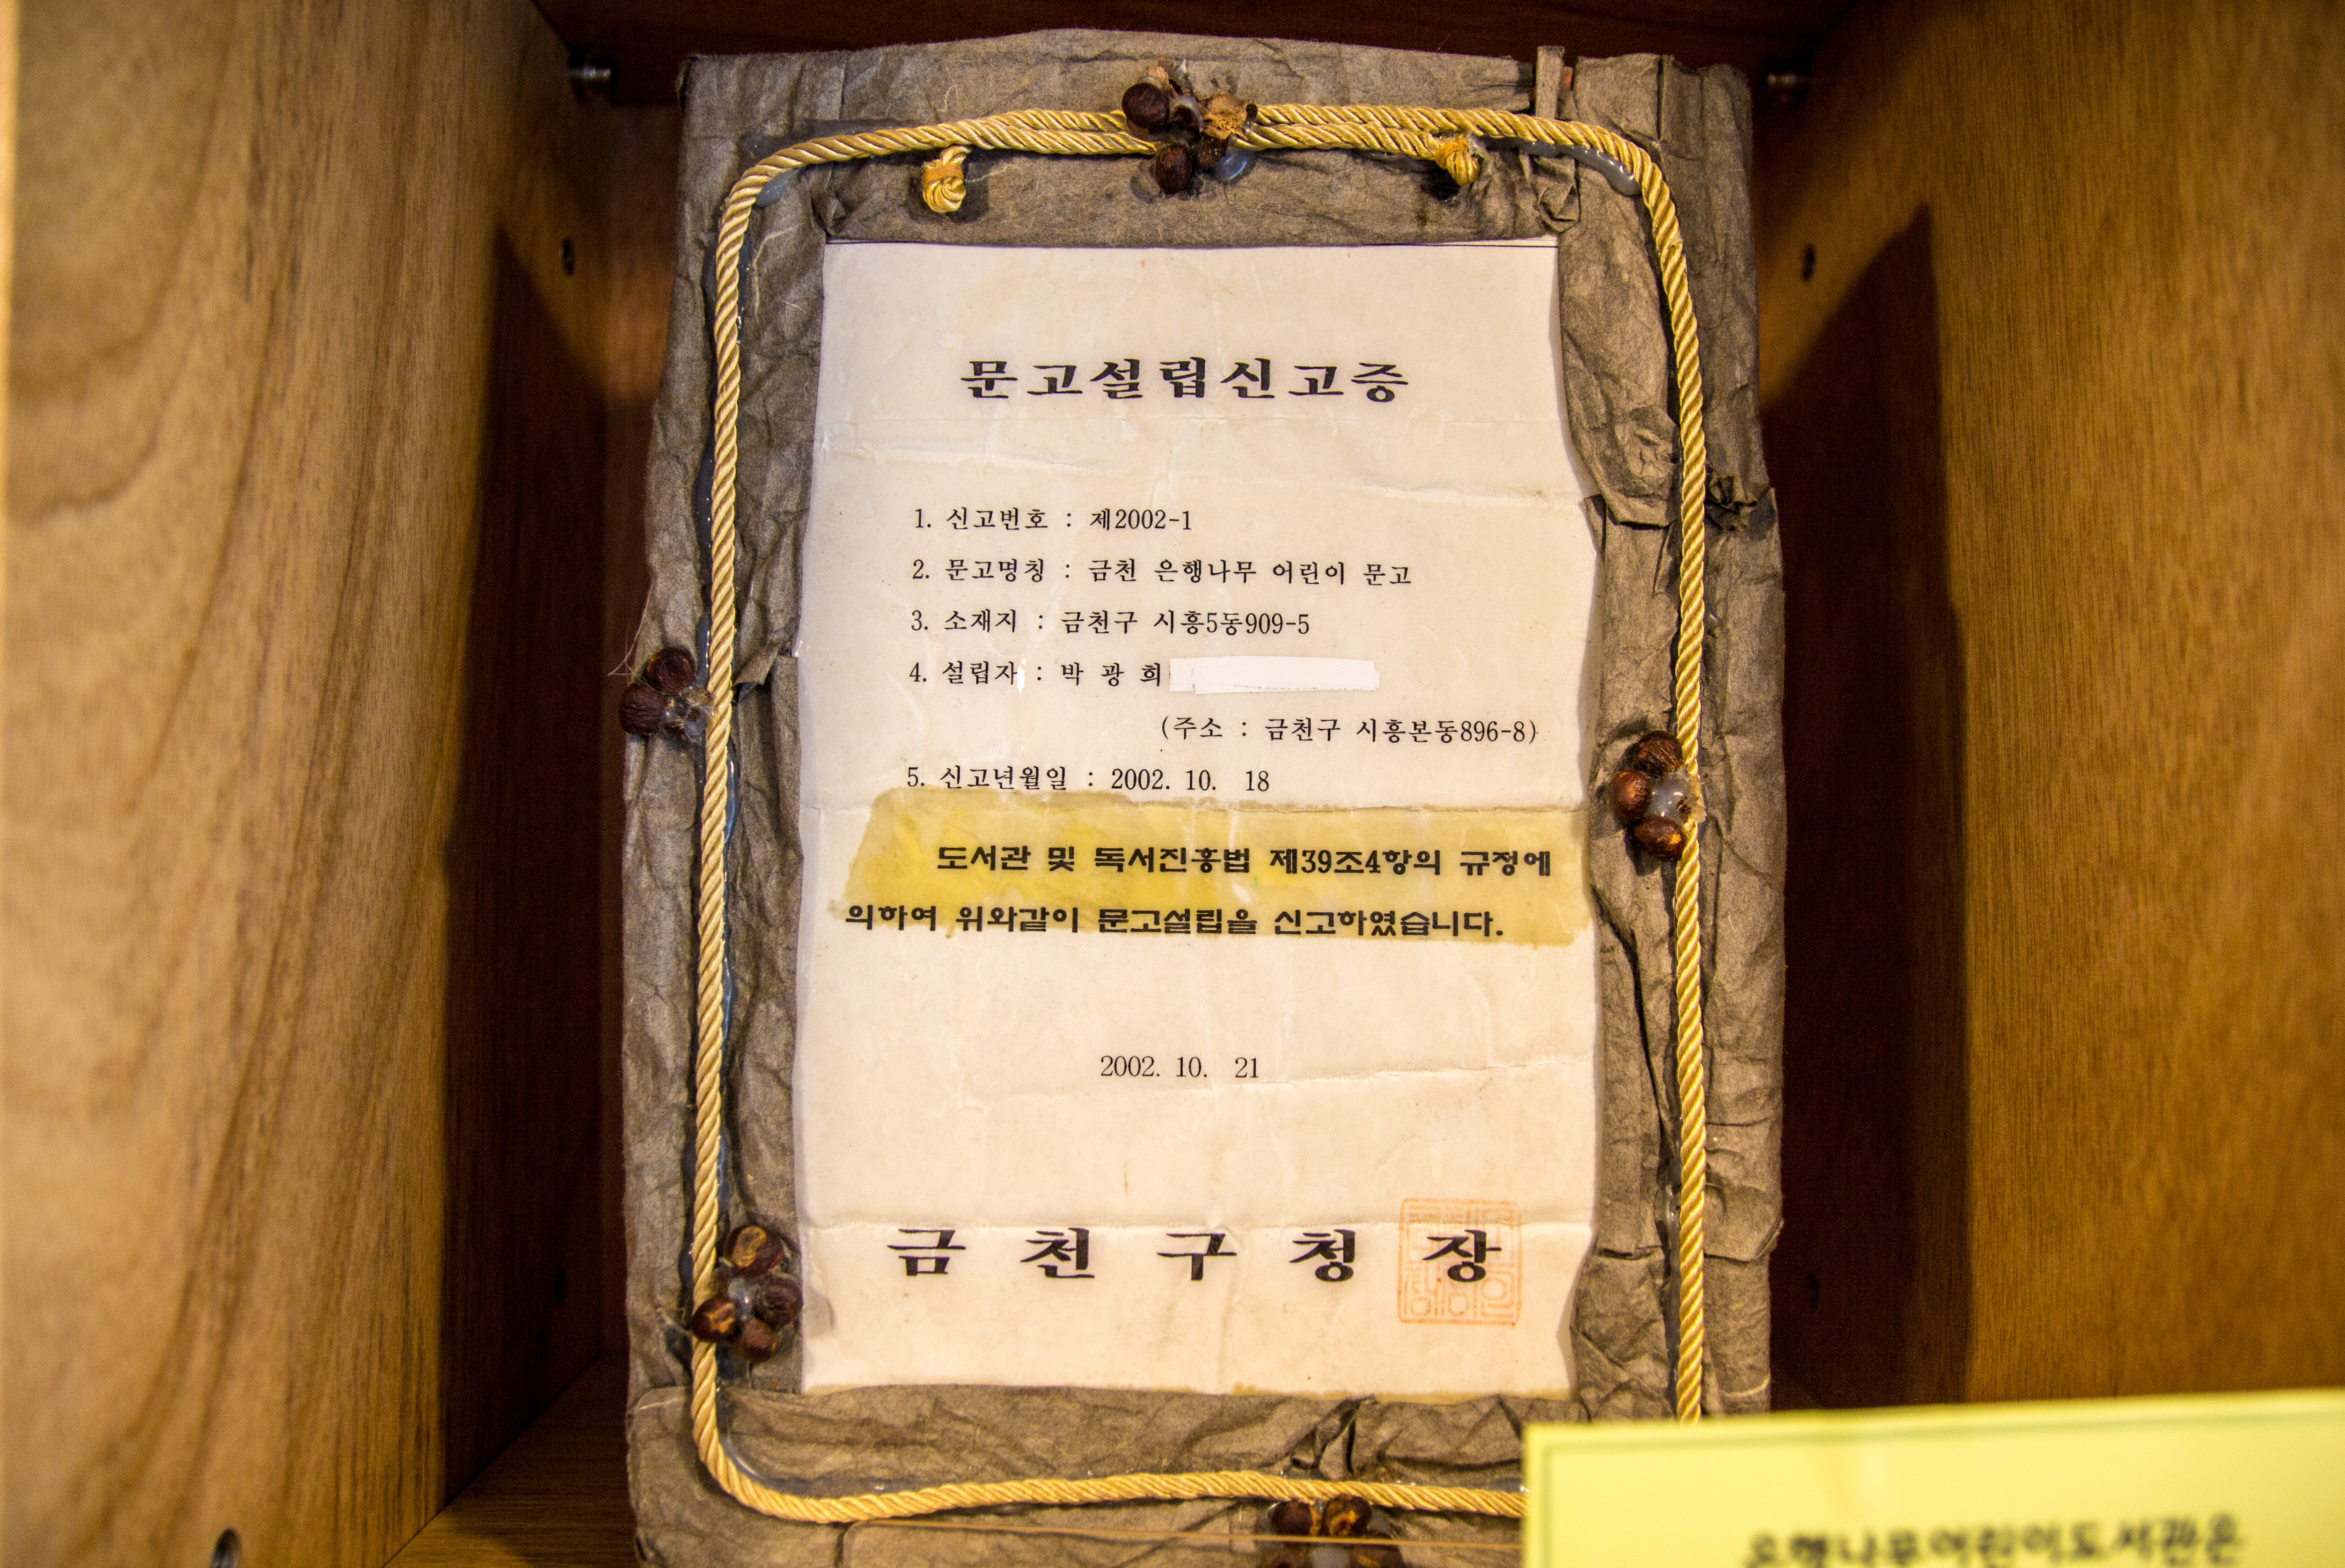 문고설립신고증
1. 신고번호 : 제2002-1
2. 문고명칭 : 금천 은행나무 어린이 문고
3. 소재지 : 금천구 시흥5동909-5
4. 설립자 : 박 광 희
(주소 : 금천구 시흥본동896-8)
5. 신고년월일 : 2002. 10. 18
도서관 및 독서진흥법 제39조4항의 규정에
의하여 위와같이 문고설립을 신고하였습니다.
2002. 10. 21
금 천 구 청 장
은행나무어린이도서관은